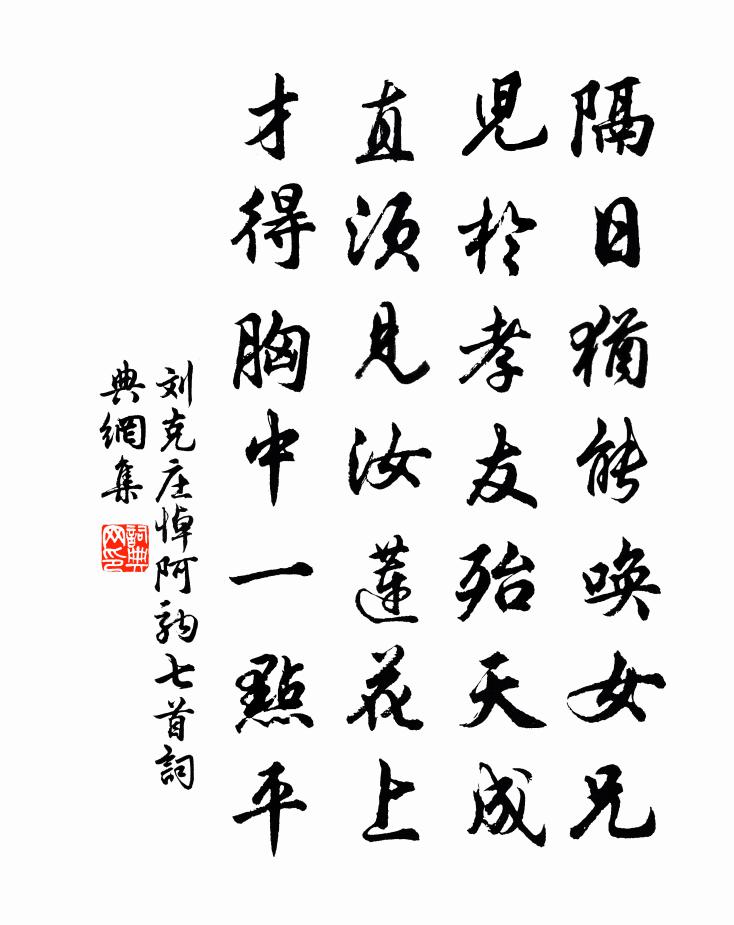 隔日猶能喚女兄
児於孝友殆天成
直須見汝蓮花上
才得胸中一點平
刘克庄悼阿駒七首詞
典網集
詞典
网印